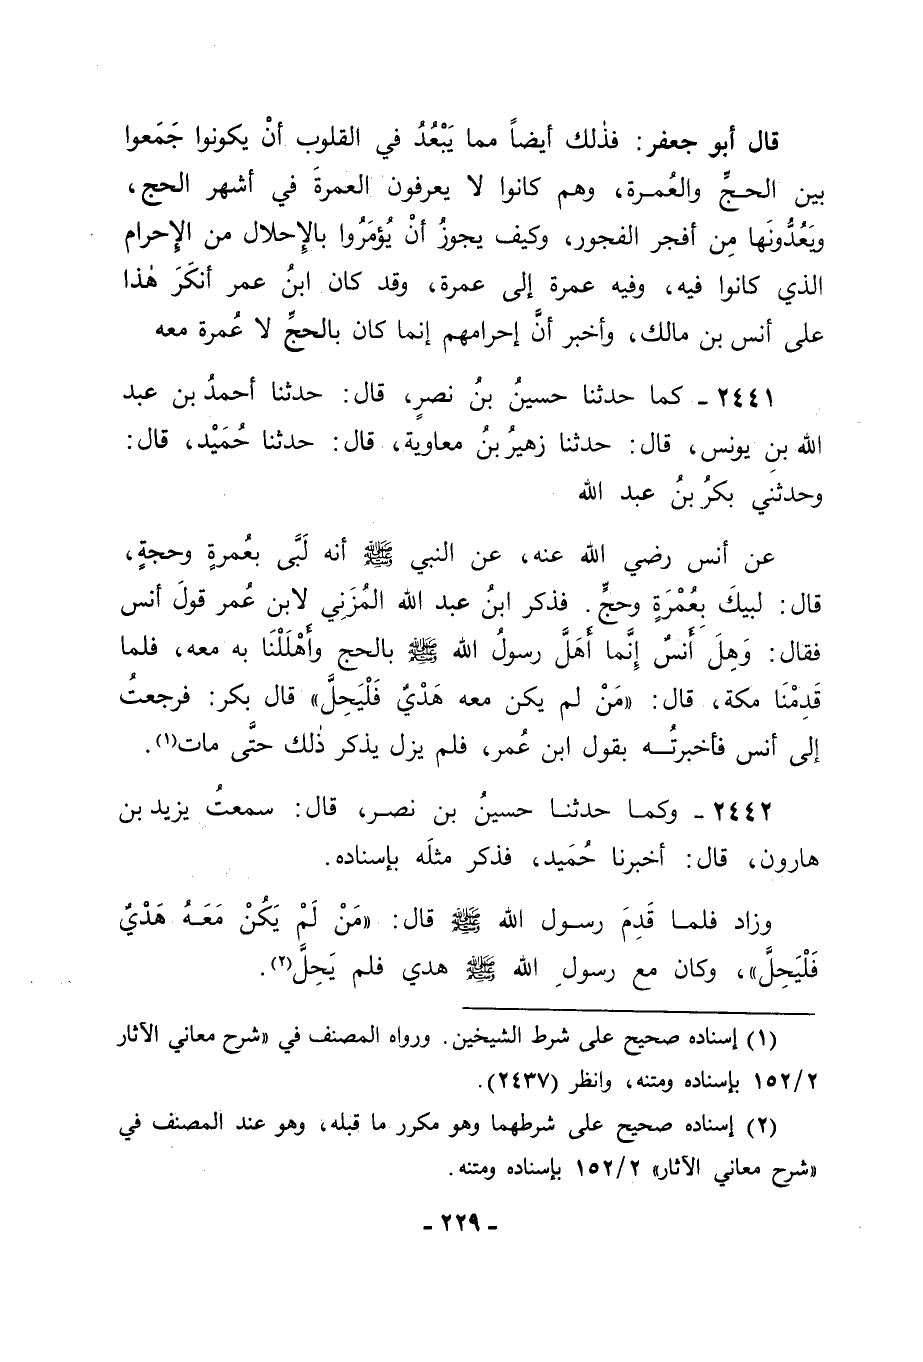 قال أبو جعفر: فذٰلك أيضاً مما يَبْعُدُ في القلوب أنْ يكونوا جَمَعوا
بين الحجِّ والعُمرة، وهم كانوا لا يعرفون العمرةَ في أشهر الحج،
ويَعُدُّونَها مِن أفجر الفجور، وكيف يجوزُ أنْ يُؤمَرُوا بالإِحلال من الإِحرام
الذي كانوا فيه، وفيه عمرة إلى عمرة، وقد كان ابنُ عمر أنكَرَ هٰذا
على أنس بن مالك، وأخبر أنَّ إحرامهم إنما كان بالحجِّ لا عُمرة معه
٢٤٤١ ـ كما حدثنا حسينُ بنُ نصرٍ، قال: حدثنا أحمدُ بن عبد
الله بن يونس، قال: حدثنا زهيرُ بنُ معاوية، قال: حدثنا حُمَيْد، قال:
وحدثني بكرُ بنُ عبد الله
عن أنس رضي الله عنه، عن النبي ﷺ أنه لَبَّى بعُمرةٍ وحجةٍ،
قال: لبيكَ بِعُمْرَةٍ وحجٍّ. فذكر ابنُ عبد الله المُزَنِي لابن عمر قولَ أنس
فقال: وَهِلَ أَنسٌ إنَّما أَهَلَّ رسولُ الله ﷺ بالحج وأَهْلَلْنَا به معه، فلما
قَدِمْنَا مكة، قال: «مَنْ لم يكن معه هَدْيٌ فَلْيَحِلَّ» قال بكر: فرجعتُ
إلى أنس فأخبرتُه بقول ابن عُمر، فلم يزل يذكر ذٰلك حتَّى مات(١).
٢٤٤٢ ـ وكما حدثنا حسينُ بن نصر، قال: سمعتُ يزيد بن
هارون، قال: أخبرنا حُمَيد، فذكر مثلَه بإسناده.
وزاد فلما قَدِمَ رسول الله ﷺ قال: «مَنْ لَمْ يَكُنْ مَعَهُ هَدْيٌ
فَلْيَحِلَّ»، وكان مع رسولِ الله ﷺ هدي فلم يَحِلَّ(٢).
(١) إسناده صحيح على شرط الشيخين. ورواه المصنف في «شرح معاني الآثار
١٥٢/٢ بإسناده ومتنه، وانظر (٢٤٣٧).
(٢) إسناده صحيح على شرطهما وهو مكرر ما قبله، وهو عند المصنف في
«شرح معاني الآثار» ١٥٢/٢ بإسناده ومتنه.
- ٢٢٩ -